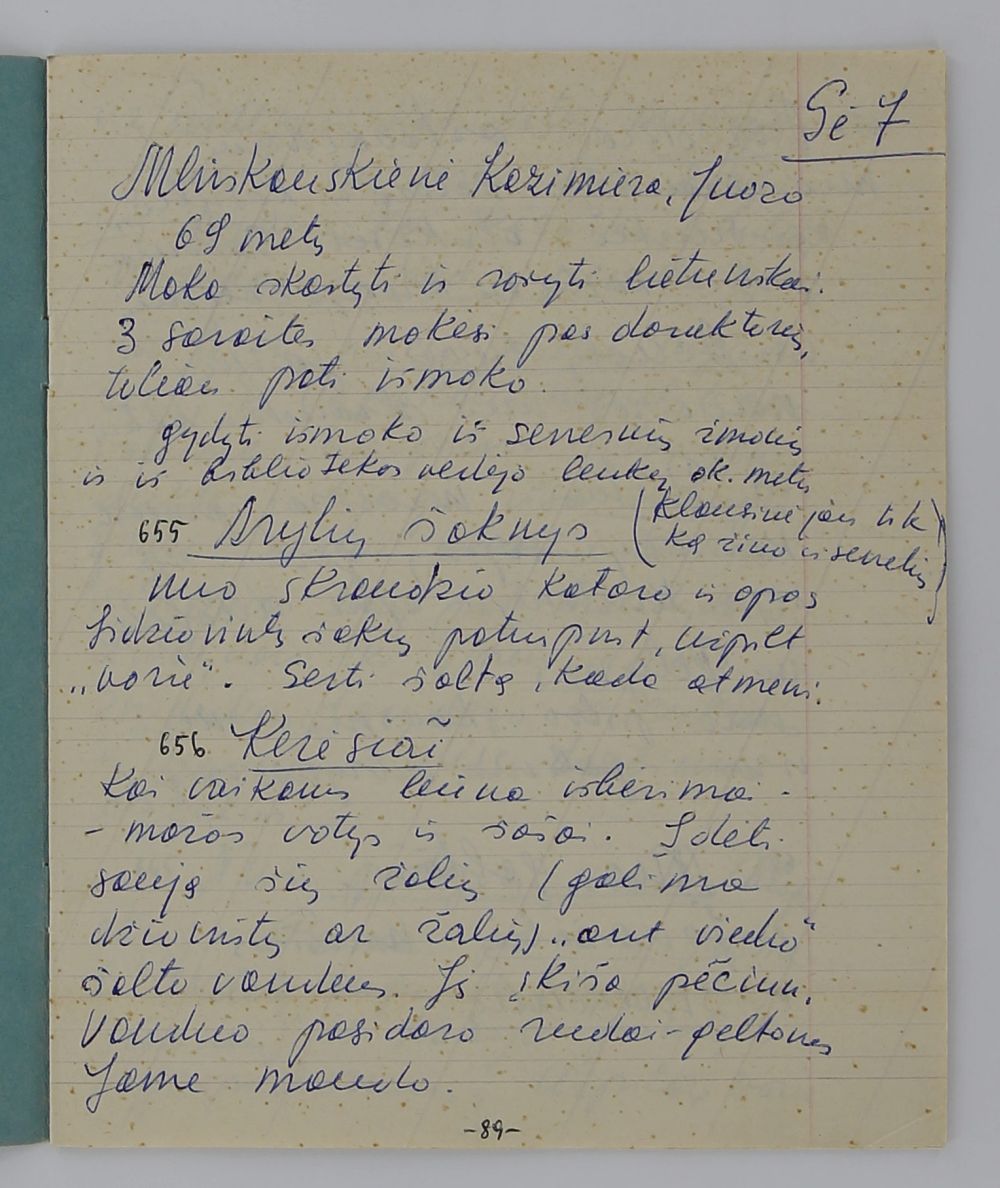 Gė 7
Kazimiera, Juozo
69 metų
Moka skaityti ir rašyti lietuviškai.
3 savaites mokėsi pas daraktorių,
toliau pati išmoko.
gydyti išmoko iš senesnių žmonių
ir iš bibliotekos vedėjo lenkų ok. metu
655 Avylių šaknys (Klausinėjau tik
ką žino iš senelių)
nuo skrandžio kataro ir opos
Sudžiovintų šaknų patrupint, užpilt
„ . Gerti šaltą, kada atmeni.
656 Kerėšiai
Kai vaikams būna išbėrimai -
- mažos votys ir šašai. Įdėti
saują šių žolių (galima
džiovintų ar žalių) „ant viedro“
šalto vandens. Jį įkiša pėčiun.
Vanduo pasidaro rudai-geltonas
Jame maudo.
-89-